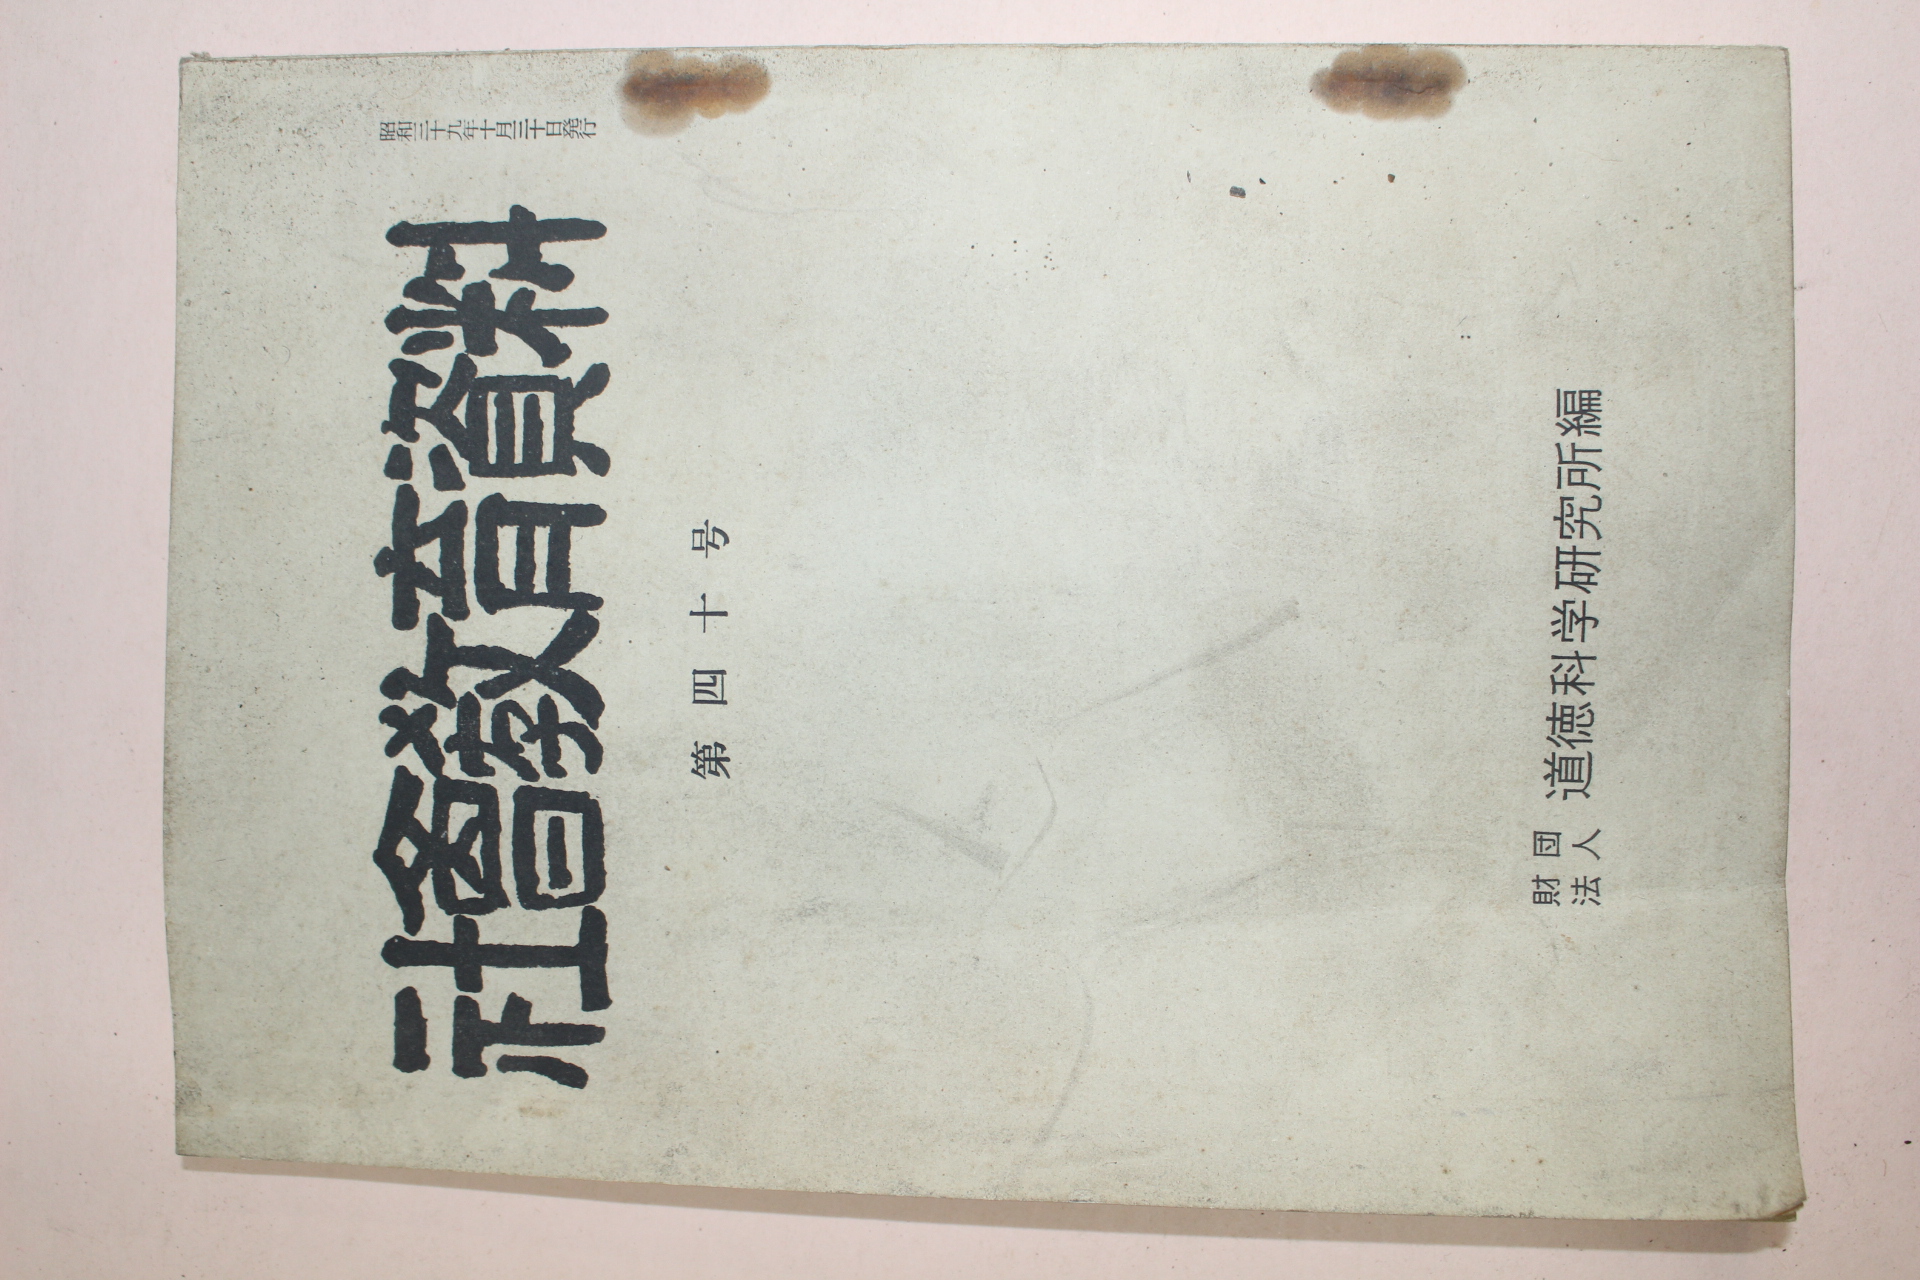 昭和三十九年十月三十日発行
社會教育資料
第四十号
財団
法人
道徳科学研究所編